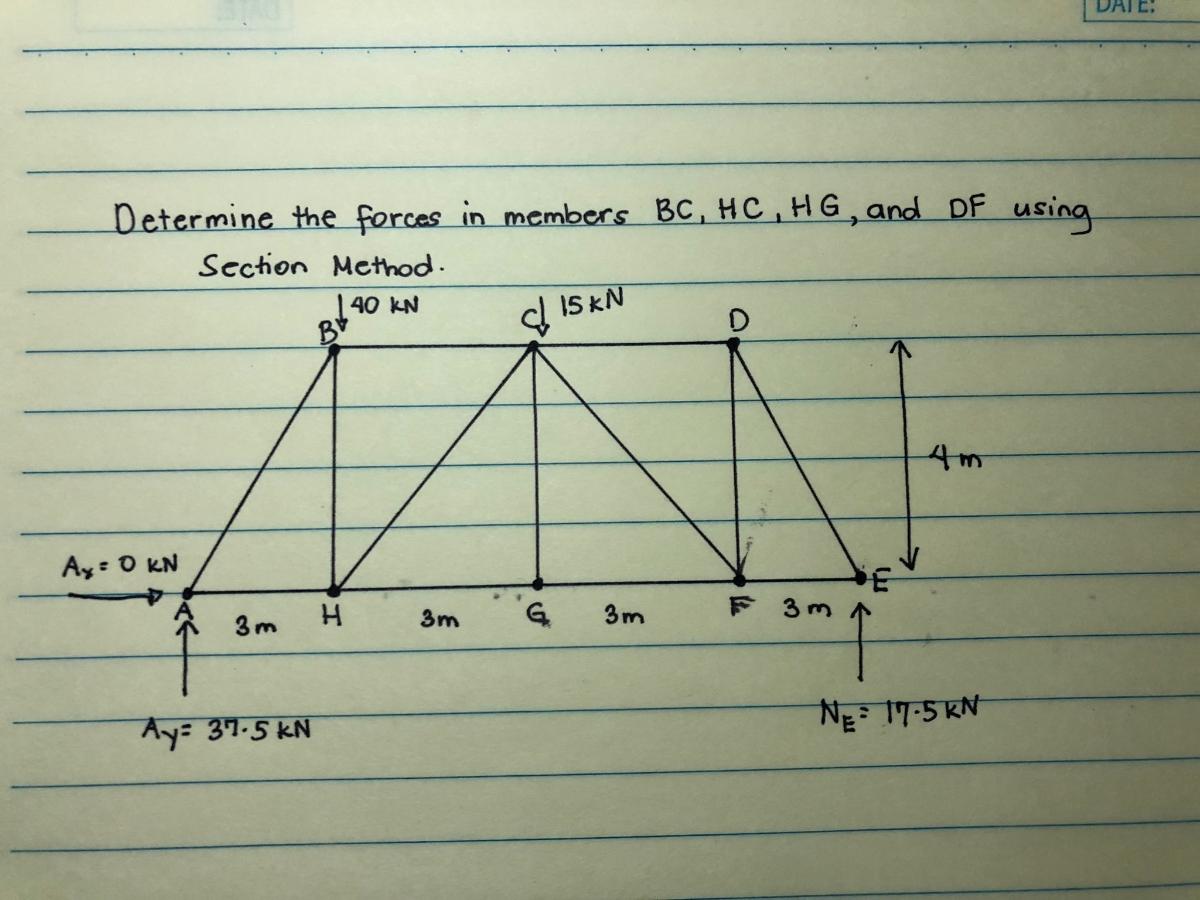 DATE:
Determine the forces in members BC, HC, HG, and DF using
Section Method.
40 kN
15 kN
B
C
D
4 m
Ax = 0 kN
A
H
G
F
E
3m
3m
3m
3m
Ay = 37.5 kN
NE = 17.5 kN